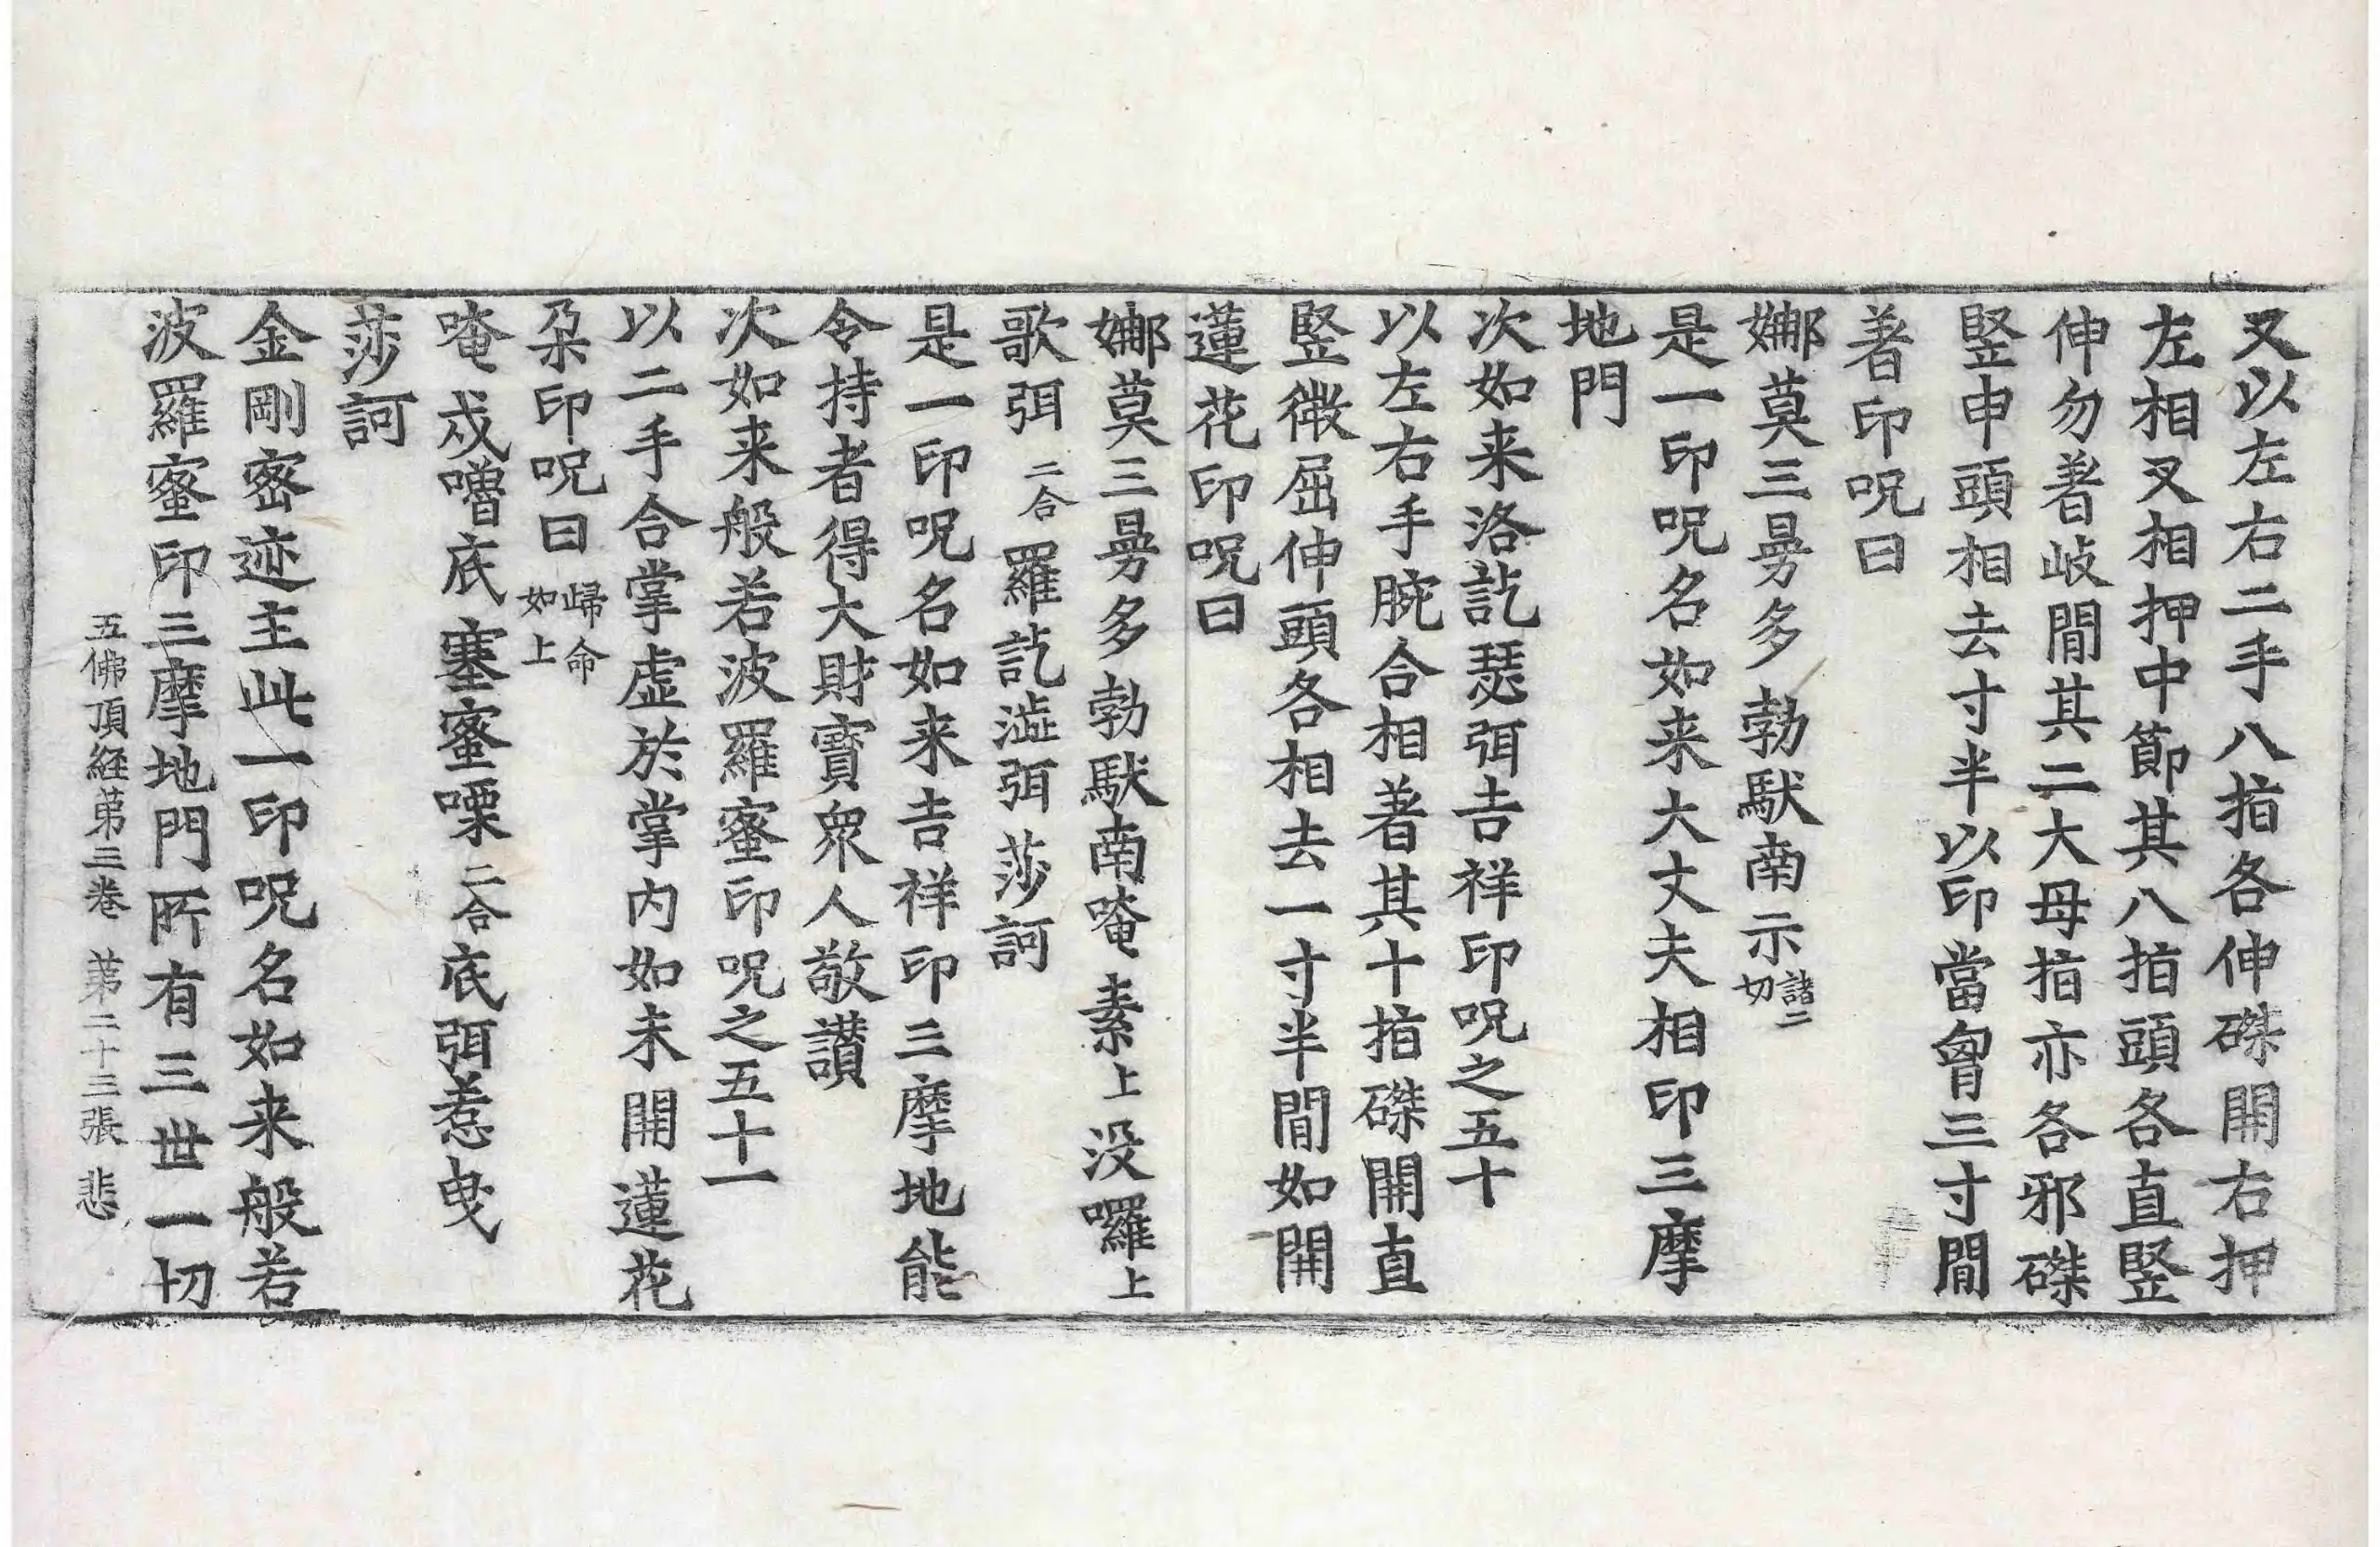 又以左右二手八指各伸磔開右押
左相叉相押中節其八指頭各直竪
伸勿著岐間其二大母指亦各邪磔
竪申頭相去寸半以印當曾三寸間
著印呪曰
娜莫三曼多勃䭾南示諸二切
是一印呪名如来大丈夫相印三摩
地門
次如来洛訖瑟弭吉祥印呪之五十
以左右手腕合相著其十指磔開直
竪微屈伸頭各相去一寸半間如開
蓮花印呪曰
娜莫三曼多勃䭾南唵素上没囉上
歌弭二合羅訖澁弭莎訶
是一印呪名如来吉祥印三摩地能
令持者得大財寳衆人敬讃
次如来般若波羅蜜印呪之五十一
以二手合掌虛於掌内如未開蓮花
朶印呪曰歸命如上
唵戍嚕底塞蜜㗚二合底弭惹曳
莎訶
金剛密迹主此一印呪名如来般若
波羅蜜印三摩地門所有三世一切
五佛頂経第三卷 第二十三張 悲